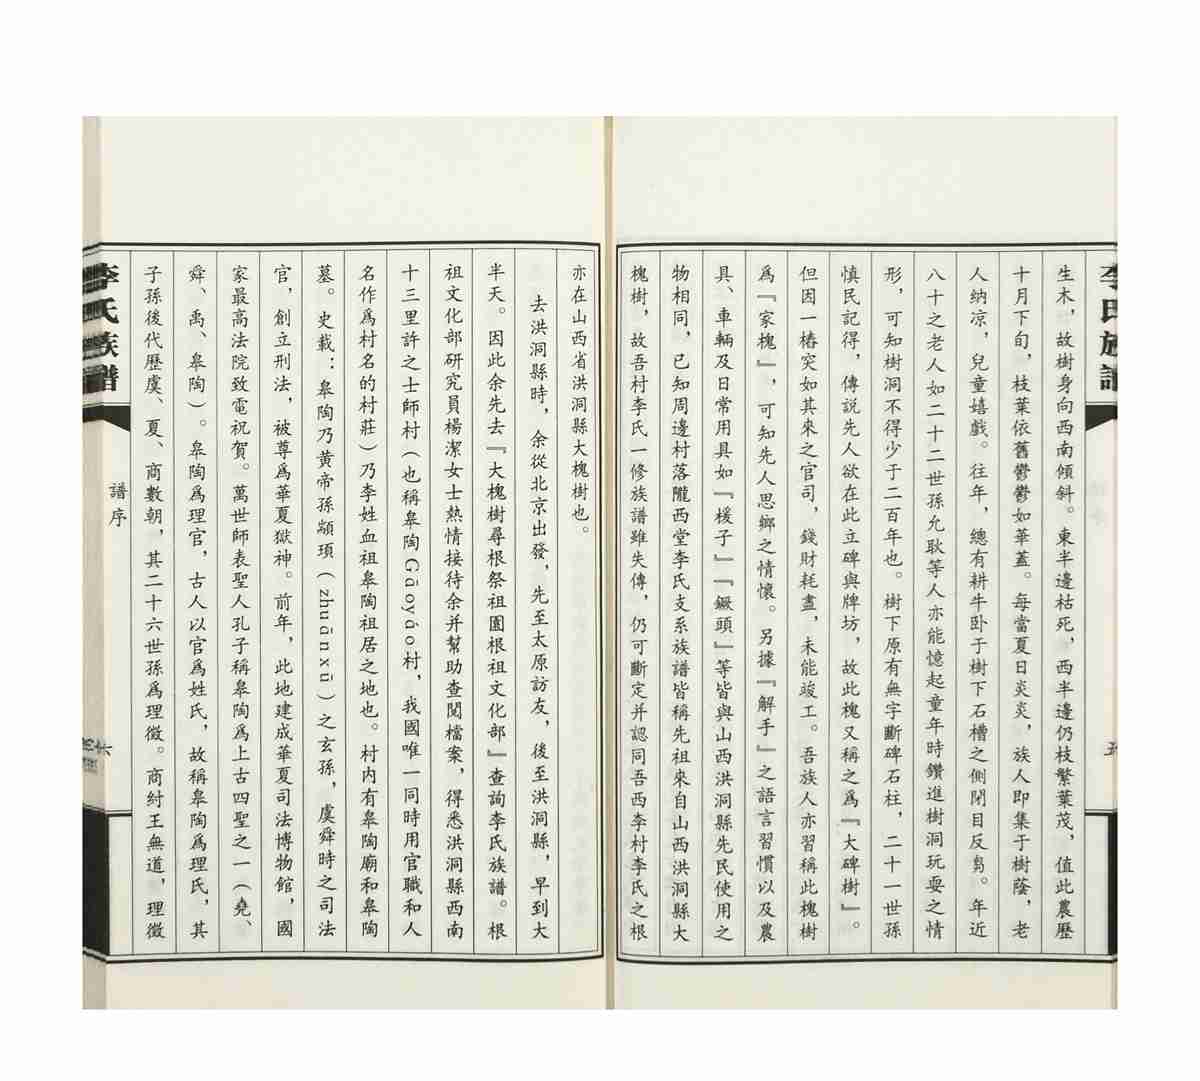 李氏族譜
生木，故樹身向西南傾斜。東半邊枯死，西半邊仍枝繁葉茂，值此農歷
十月下旬，枝葉依舊鬱鬱如華蓋。每當夏日炎炎，族人即集于樹蔭，老
人納凉，兒童嬉戲。往年，總有耕牛卧于樹下石槽之側閉目反芻。年近
八十之老人如二十二世孫允耿等人亦能憶起童年時鑽進樹洞玩耍之情
形，可知樹洞不得少于二百年也。樹下原有無字斷碑石柱，二十一世孫
慎民記得，傳説先人欲在此立碑與牌坊，故此槐又稱之爲『大碑樹』。
但因一樁突如其來之官司，錢財耗盡，未能竣工。吾族人亦習稱此槐樹
爲『家槐』，可知先人思鄉之情懷。另據『解手』之語言習慣以及農
具、車輛及日常用具如『楥子』『鐝頭』等皆與山西洪洞縣先民使用之
物相同，已知周邊村落隴西堂李氏支系族譜皆稱先祖來自山西洪洞縣大
槐樹，故吾村李氏一修族譜雖失傳，仍可斷定并認同吾西李村李氏之根
亦在山西省洪洞縣大槐樹也。
去洪洞縣時，余從北京出發，先至太原訪友，後至洪洞縣，早到大
半天。因此余先去『大槐樹尋根祭祖園根祖文化部』查詢李氏族譜。根
祖文化部研究員楊潔女士熱情接待余并幫助查閲檔案，得悉洪洞縣西南
十三里許之士師村（也稱皋陶Gāoyáo村，我國唯一同時用官職和人
名作爲村名的村莊）乃李姓血祖皋陶祖居之地也。村内有皋陶廟和皋陶
墓。史載：皋陶乃黄帝孫顓頊（zhuānxū）之玄孫，虞舜時之司法
官，創立刑法，被尊爲華夏獄神。前年，此地建成華夏司法博物館，國
家最高法院致電祝賀。萬世師表聖人孔子稱皋陶爲上古四聖之一（堯、
舜、禹、皋陶）。皋陶爲理官，古人以官爲姓氏，故稱皋陶爲理氏，其
子孫後代歷虞、夏、商數朝，其二十六世孫爲理徵。商紂王無道，理徵
李氏族譜
譜序